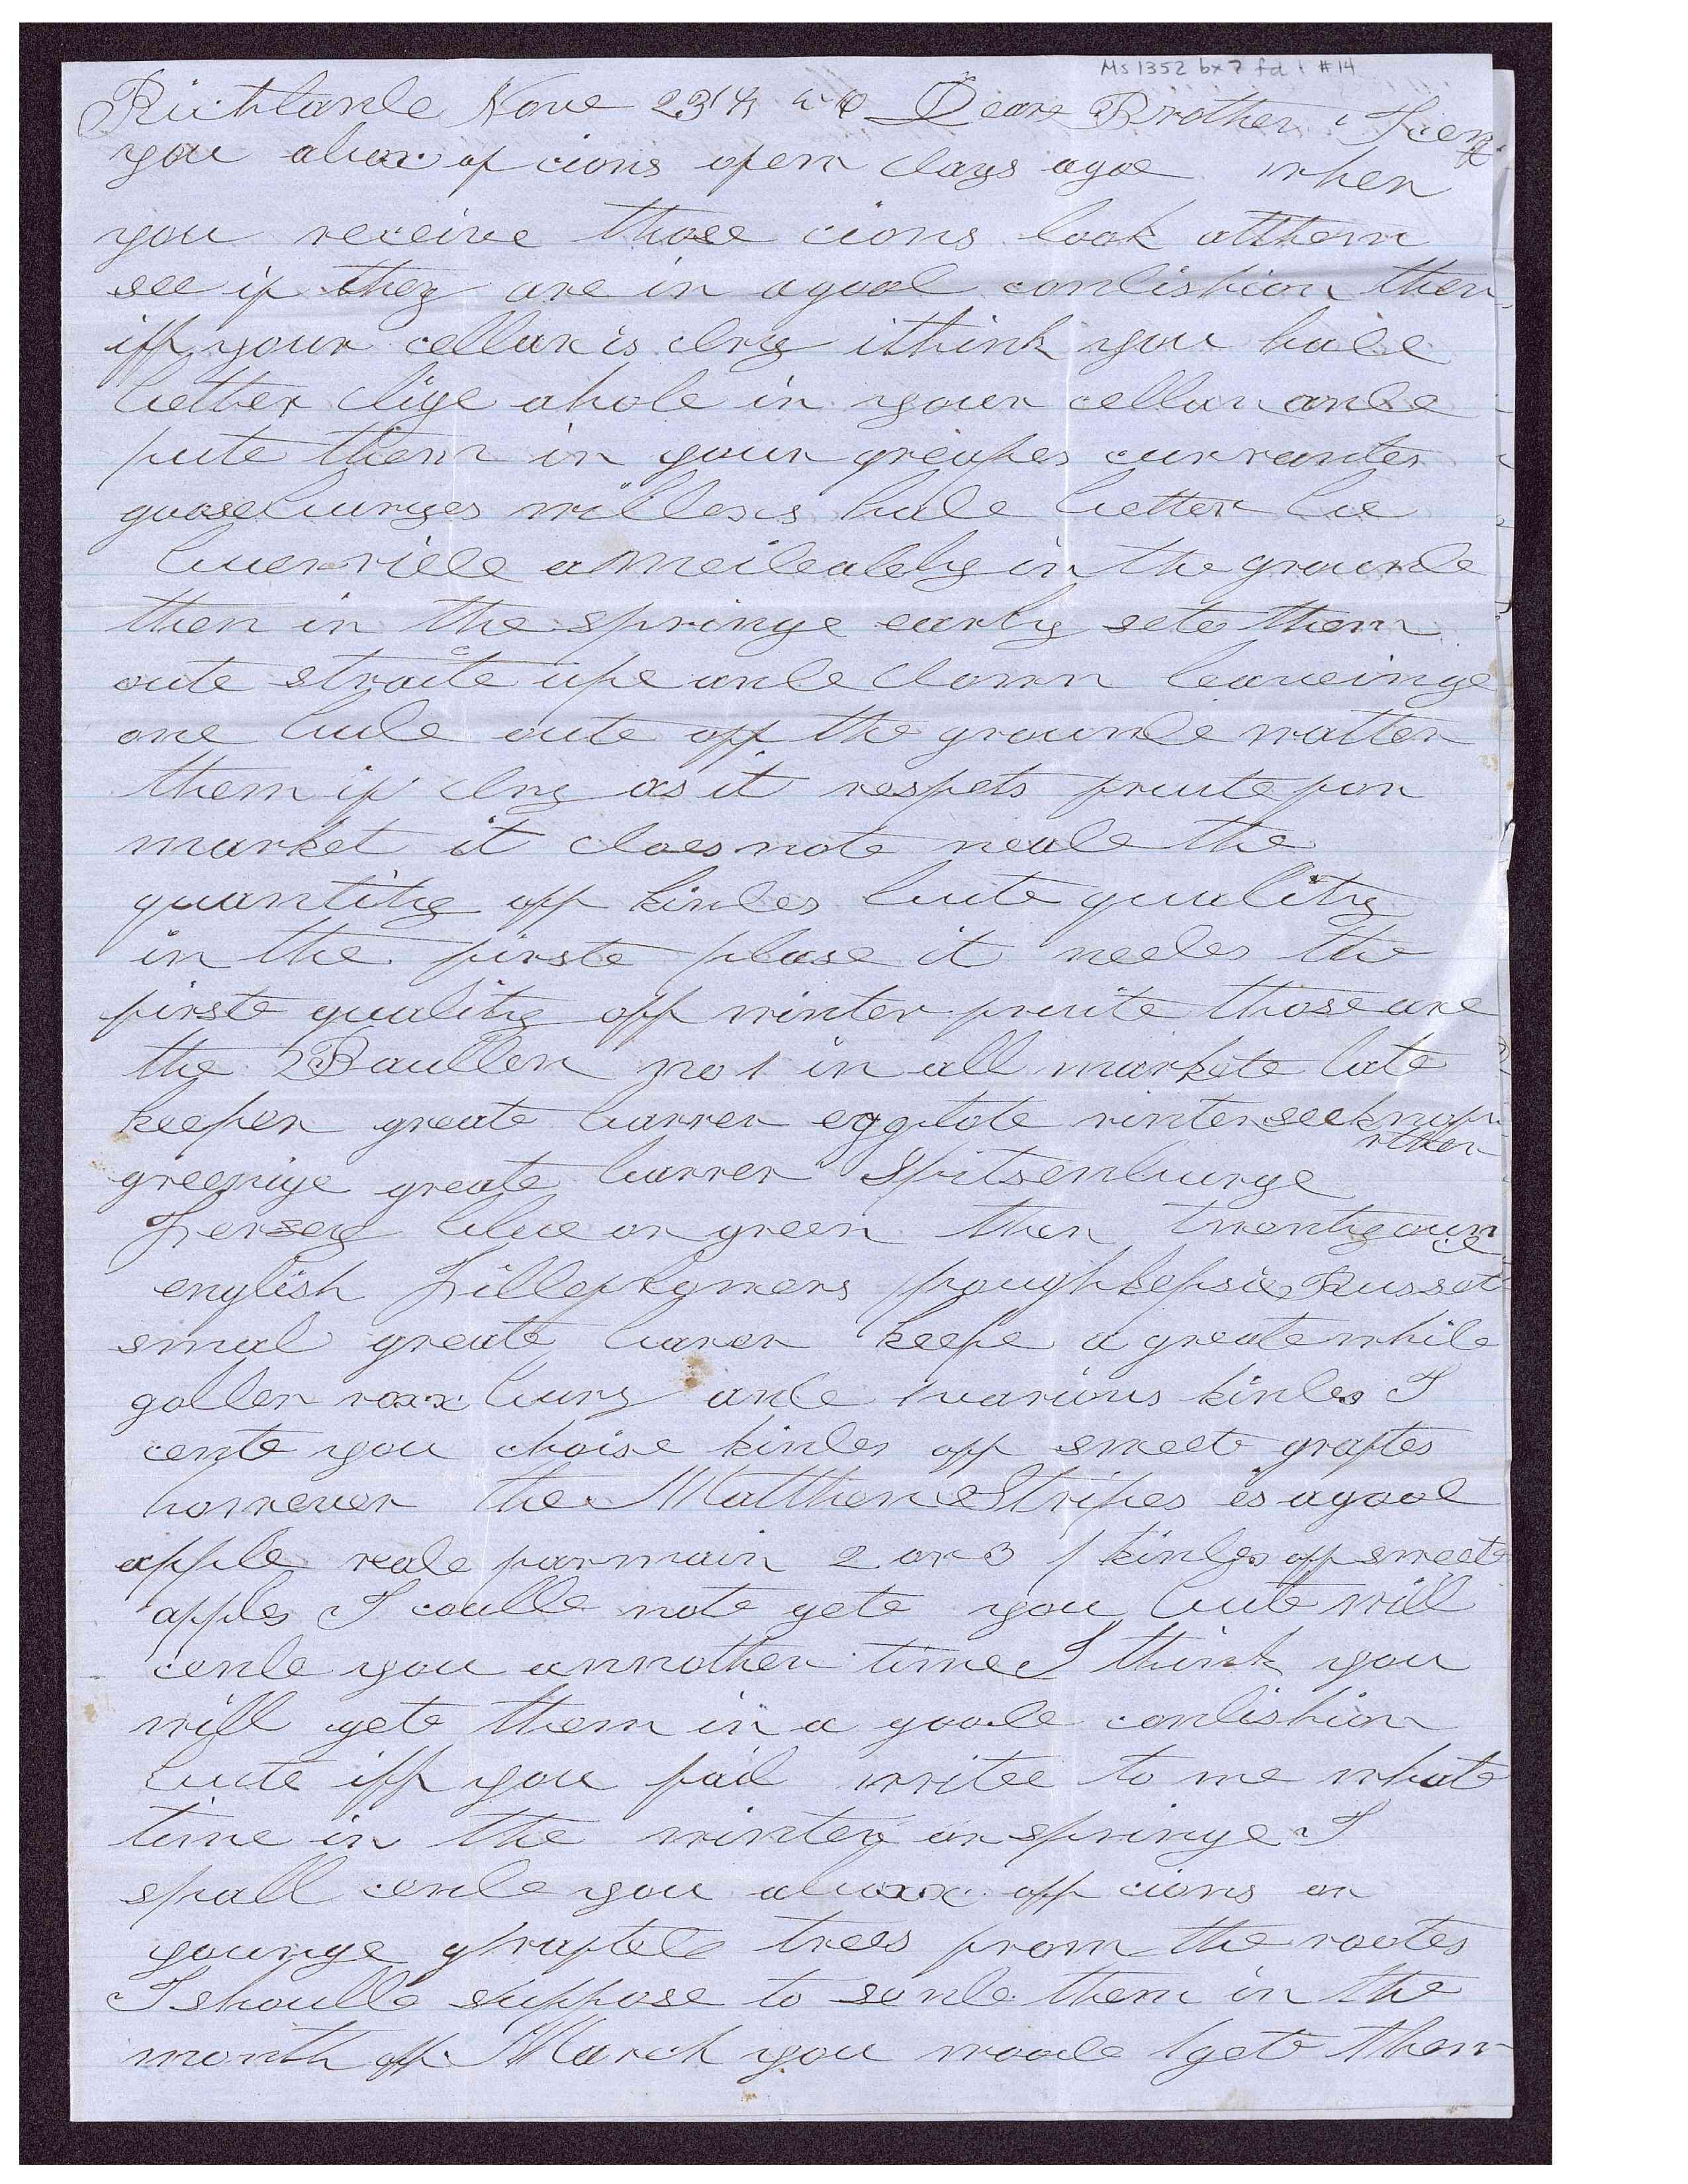 Ms 1352 bx 7 fd 1 #14
Richlande Nove 23th Deare Brother i Cen
you abox of cions afem days agoe when
you receive those cions look atthem
see if they are in agood condishion then
iff your cellar is dry ithink you hade
better dige ahole in your cellar ande
pute them in your greapes currantes
gooseburyes willows hade better be
buerriede ameideatly in the grounde
then in the springe early sete them
oute straite upe ande down leaveinge
one bude oute off the grounde watter
them if dry as it respets fruite for
market it does note neade the
quantity off kindes bute quality
in the firste plase it needes the
firste quality off winter fruite those are
the Baullden no 1 in all markete late
keeper greate barrer eggtote winter seeknofur
rther
greeninge greate barrer Spitsenburge
Jersey blue or green then twenty ounce
english Gilleflyowers poughkepsie Russet
smal greate barer keepe a greate while
golden roxx bury ande warious kindes I
cente you choise kindes off sweete graftes
however the Matthew Stripes is agood
apple reale parmain 2 or 3 kindes off sweete
apples I coulde note gete you bute will
cende you annother time I think you
will gete them in a goode condishion
bute iff you fail writee to me whate
time in the winter or springe I
shall cende you aboxx off cions or
younge ghrafted trees from the rootes
I shoulde suppose to sende them in the
month off March you woode gete them